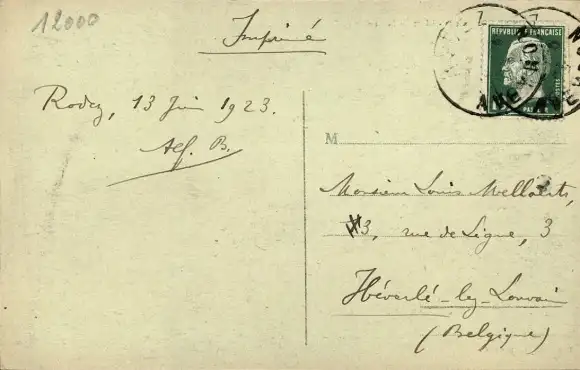 12000
Imprimé
REPUBLIQUE FRANÇAISE
POSTES
AVEYRON
Rodez, 13 Juin 1923.
Alf. B.
M
Monsieur Louis Mellaerts,
3, rue de Ligne, 3
Héverlé-lez-Louvain
(Belgique)